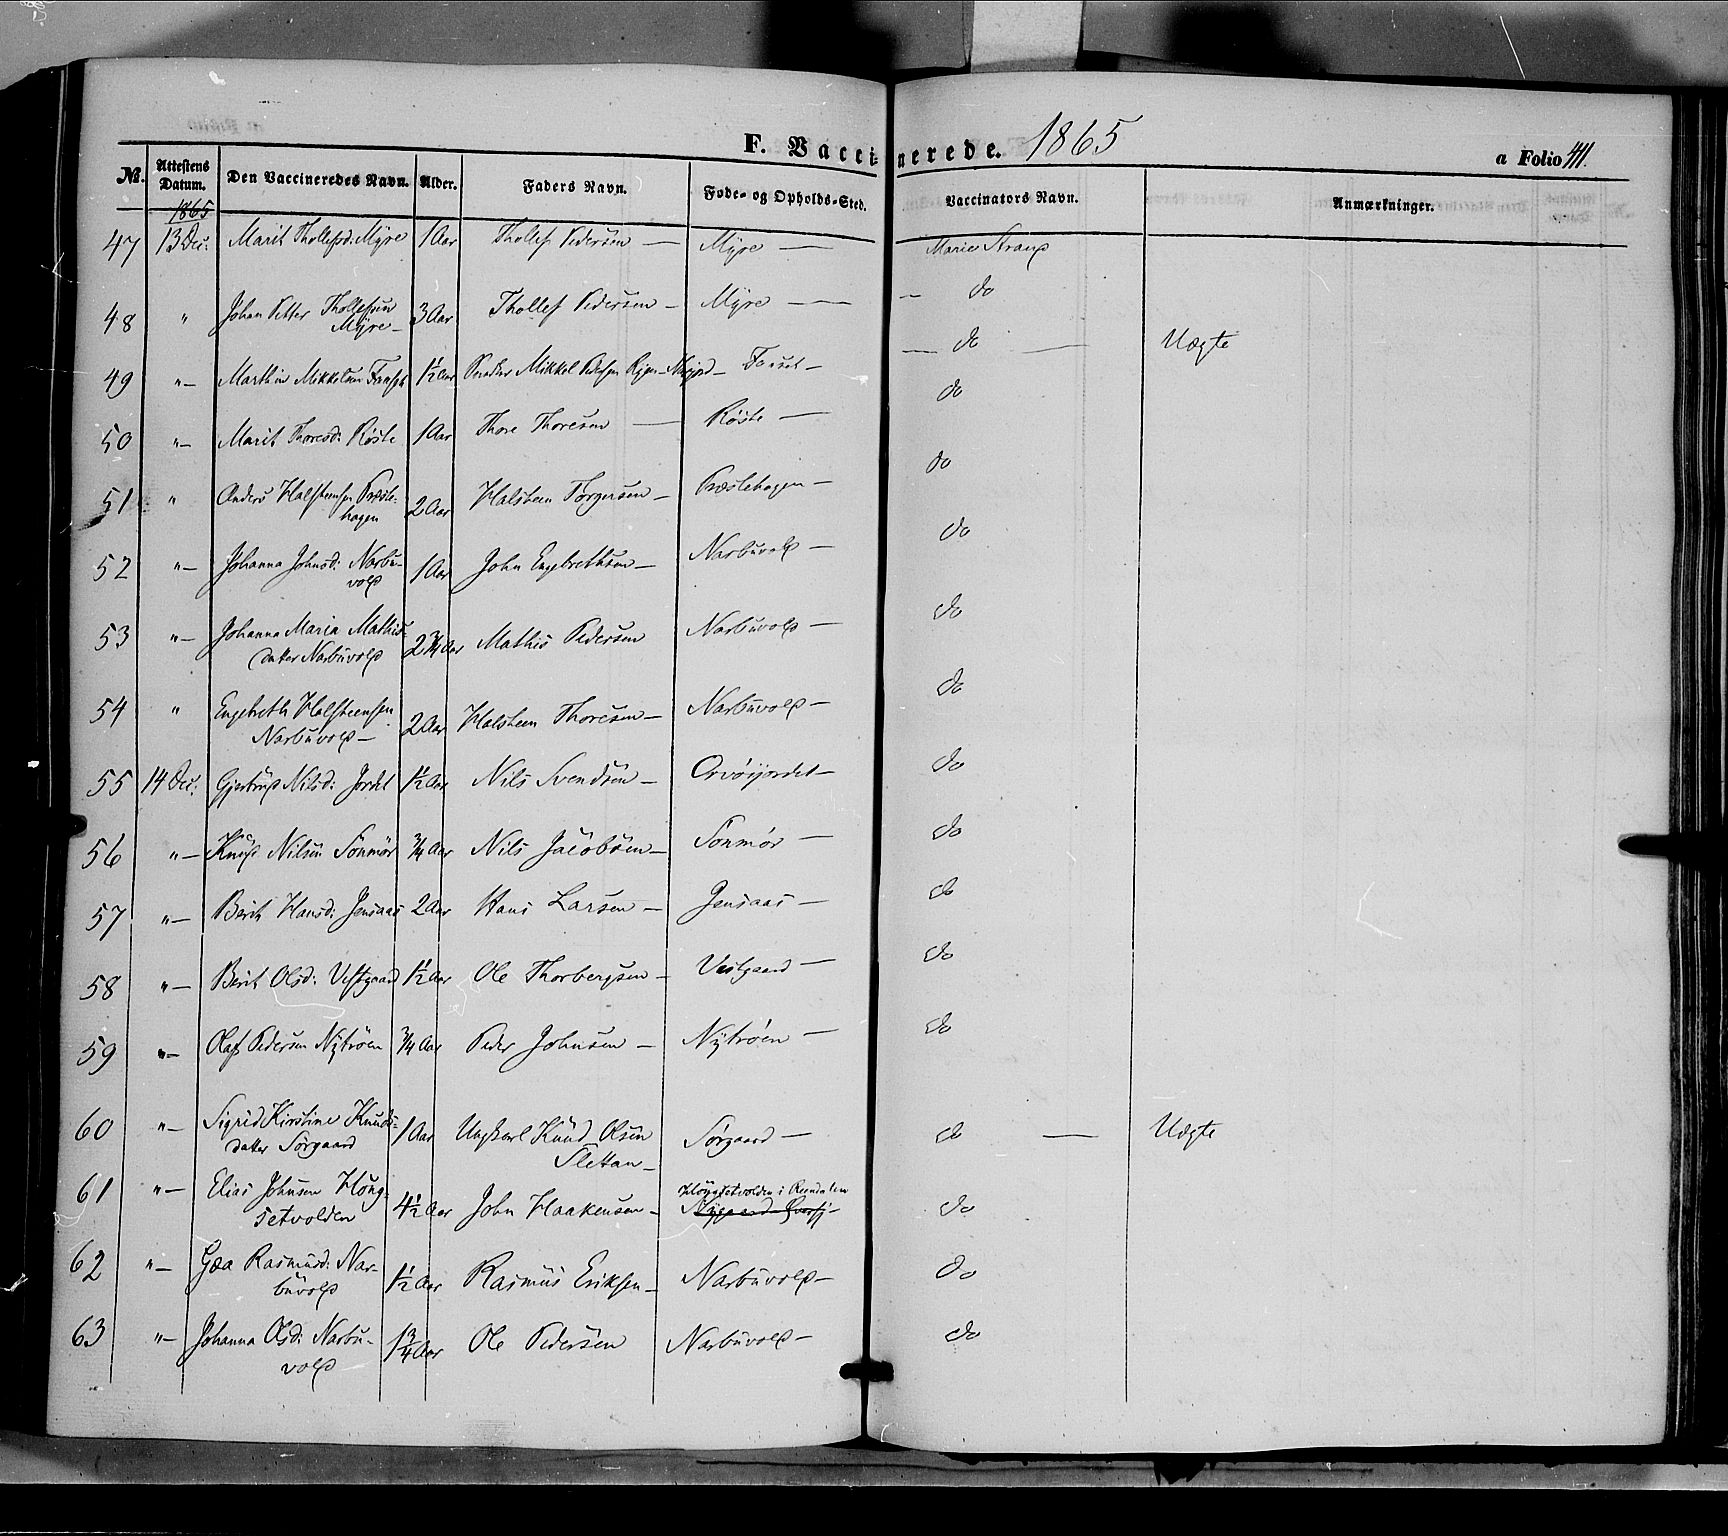 F. Vaccinerede. 1865
a Folio 411.
№. Attestens Datum. Den Vaccineredes Navn. Alder. Faders Navn. Føde- og Opholds-Sted. Vaccinators Navn. Anmærkninger.
1865
47 13 Dec: Marit Thollefsd: Myre 1 Aar Thollef Pedersen — Myre — Marie Strøup
48 " Johan Petter Thollefsen Myre — 3 Aar Thollef Pedersen — Myre — — do
49 " — Martin Mikkelsen 1½ Aar Mikkel Pedersen — Fonset — — do — Uægte
50 " — Marit Thoresd: Røste 1 Aar Thore Thoresen — Røste — do
51 " Anders Halsteensen Præstehagen 2 Aar Halsteen Torgersen — Præstehagen — do
52 " — Johanna Johnsd: Narbuvold 1 Aar John Engebrethsen — Narbuvold — do
53 " — Johanna Maria Mathisdatter Narbuvold 2¾ Aar Mathis Pedersen Narbuvold — do
54 " Engebreth Halsteensen Narbuvold — 2 Aar Halsteen Thoresen — Narbuvold — do
55 14 Dec: Gjertrud Nilsd: Jordet 1½ Aar Nils Svendsen — Orvøijordet — do
56 " — Knud Nilsen Tönmör ¾ Aar Nils Jacobsen — Tönmör — do
57 " — Berit Hansd: Jensaas 2 Aar Hans Larsen — Jensaas — do
58 " — Berit Olsd: Vestgaard 1½ Aar Ole Thorbergsen — Vestgaard — do
59 " — Olaf Pedersen Nytröen ¾ Aar Peder Johnsen — Nytröen — do
60 " — Sigrid Kirstine Knudsdatter Sörgaard 1 Aar Ungkarl Knud Olsen Slettan — Sörgaard — do — Uægte
61 " — Elias Johnsen Höngsetvolden 4½ Aar John Haakensen — Höggsetvolden i Reendalen do
62 " — Goa Rasmusd: Narbuvold 1½ Aar Rasmus Eriksen — Narbuvold — do
63 " — Johanna Olsd: Narbuvold 1¾ Aar Ole Pedersen Narbuvold — do